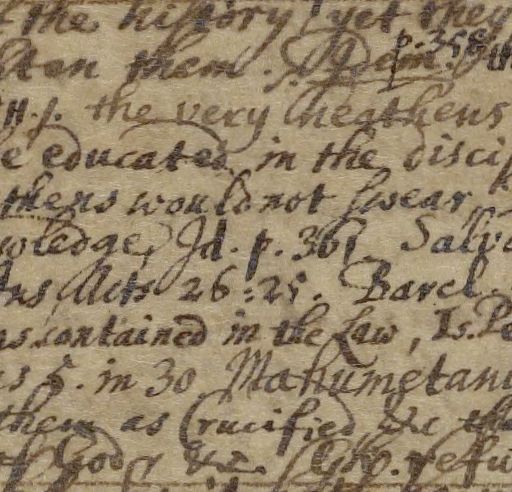 the history yet they
ten them. p. 358
H. p. the very heathens
e educated in the disci
thens would not swear
wledge, Id. p. 361 Salv
tus Acts 26:25. Barcl.
as contained in the Law, Is. Pe
s 5. in 30 Mahumetani
them as Crucified &c th
of God &c. refu